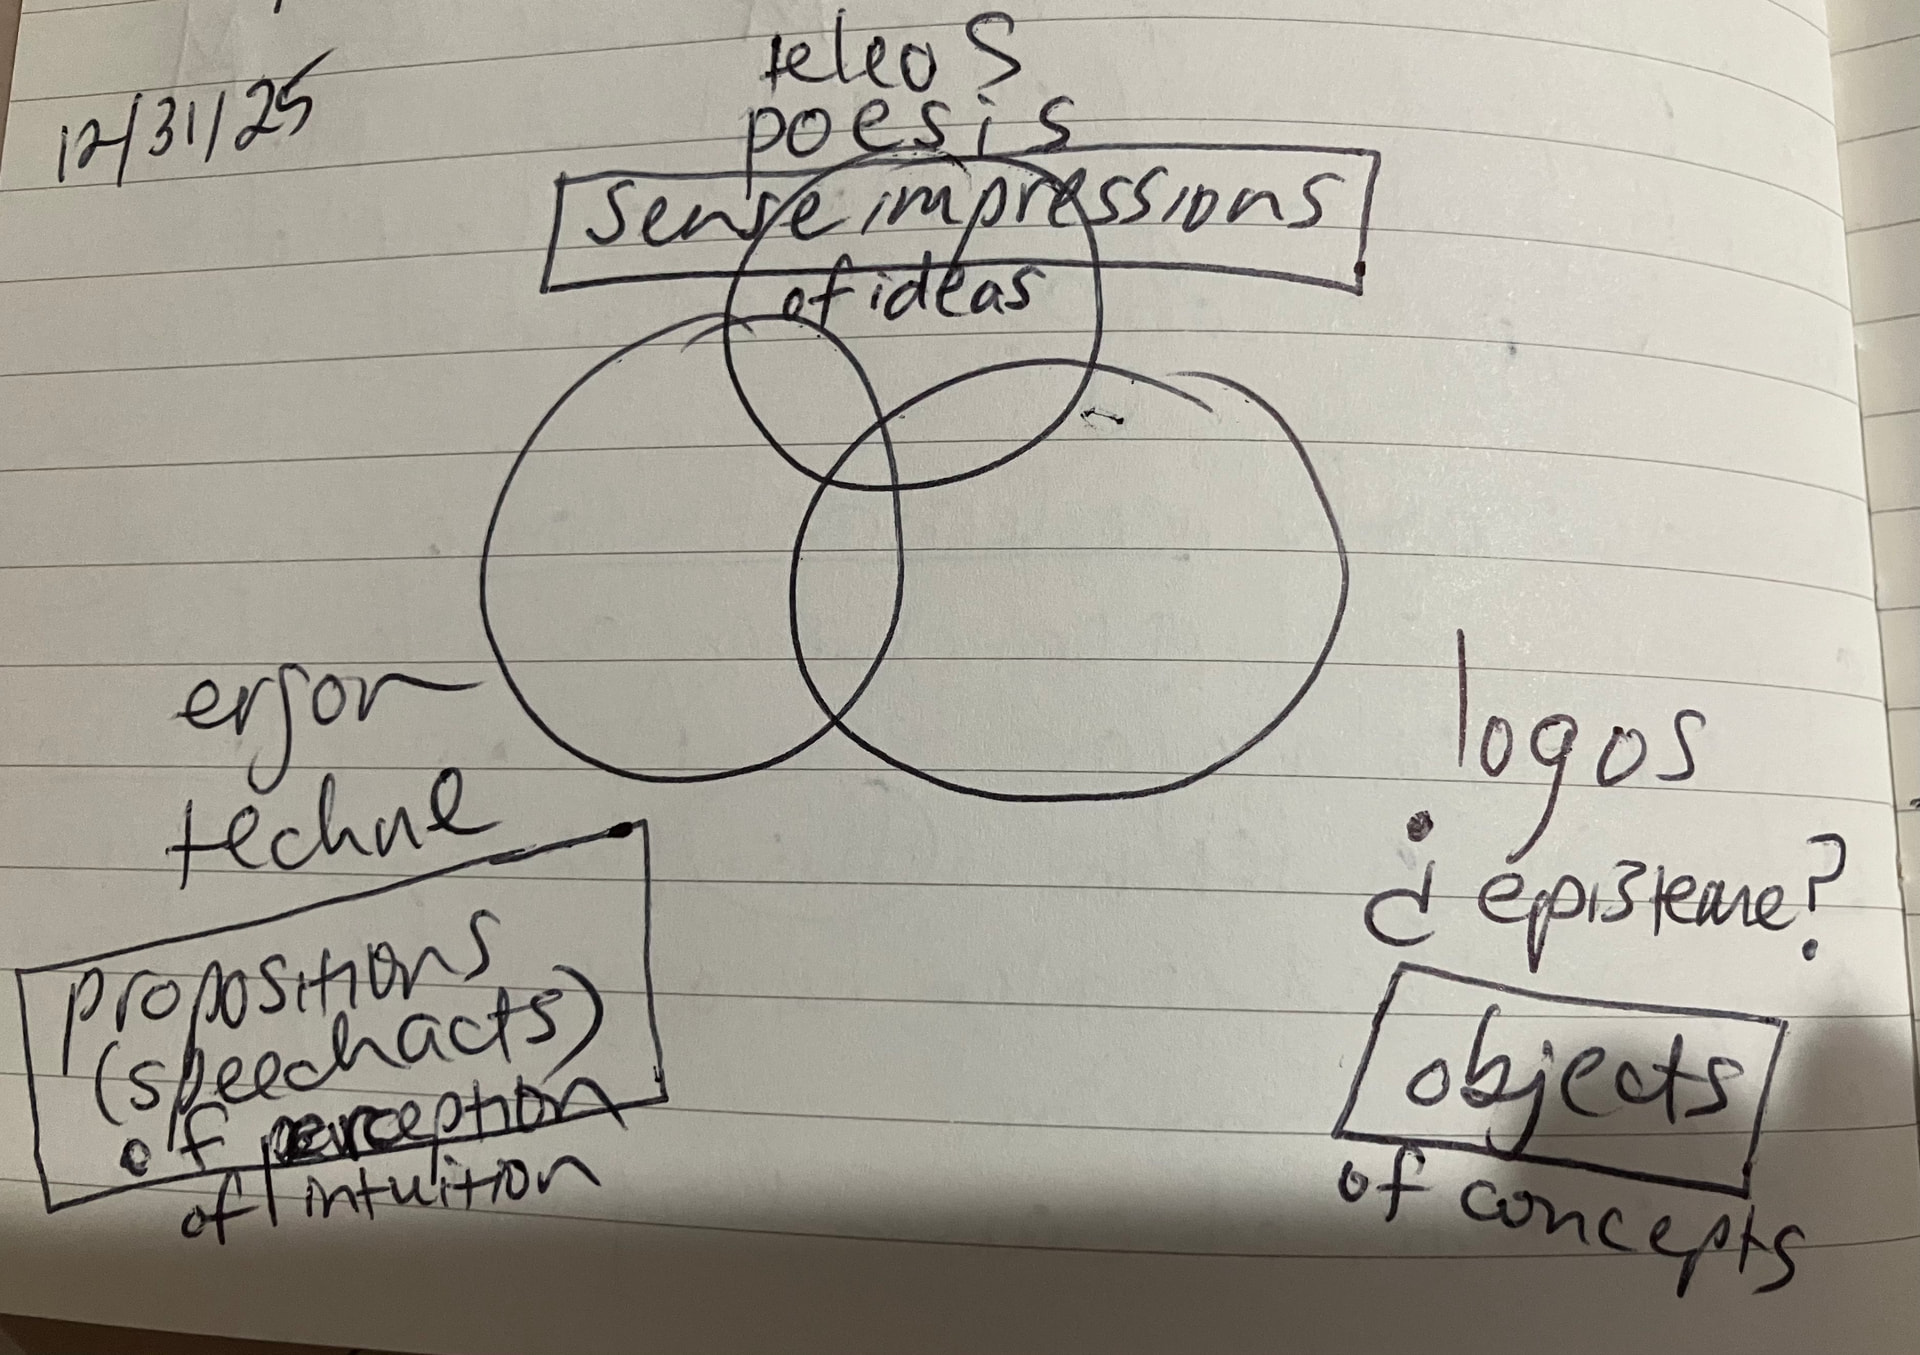 12/31/25
teleos
poesis
sense impressions
of ideas
ergon
techne
propositions
(speech acts)
of perception
of intuition
logos
¿episteme?
objects
of concepts